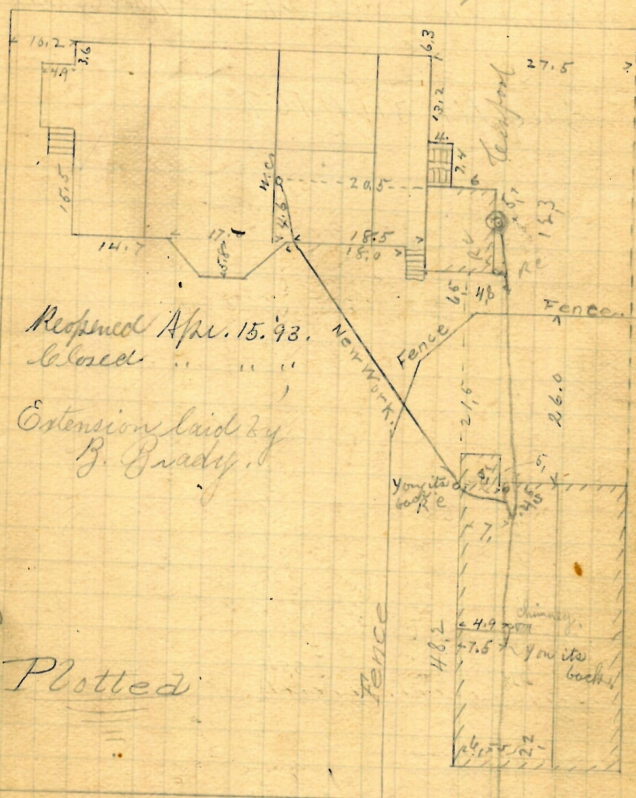 10.2
3.6
4.9
15.5
14.7
17.0
5.8
4.6
20.5
18.5
18.0
6.3
13.2
7.4
6
27.5
Cesspool
5.1
R.C
6.5
4.8
Fence
Fence
New Work.
Reopened Apr. 15. '93.
Closed " " "
Extension laid by
B. Brady.
21.6
26.0
5,
Y on its
back
7,
4.5
Fence
48.2
chimney.
4.9
7.5
Y on its
back
22
Plotted